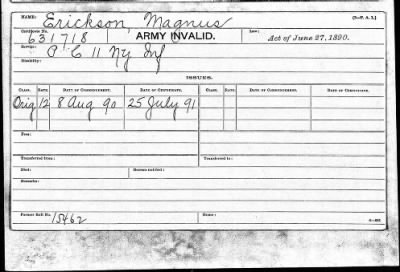 NAME: Erickson, Magnus (3-P. A. I.)
Certificate No. 631718 ARMY INVALID. Law: Act of June 27, 1890.
Service: P. C 11 Ny Inf
Disability:
ISSUES.
CLASS. RATE. DATE OF COMMENCEMENT. DATE OF CERTIFICATE. CLASS. RATE. DATE OF COMMENCEMENT. DATE OF CERTIFICATE.
Orig 12 8 Aug 90 25 July 91
Fees:
Transferred from: Transferred to:
Died: Bureau notified:
Remarks:
Former Roll No. 15462 Home: